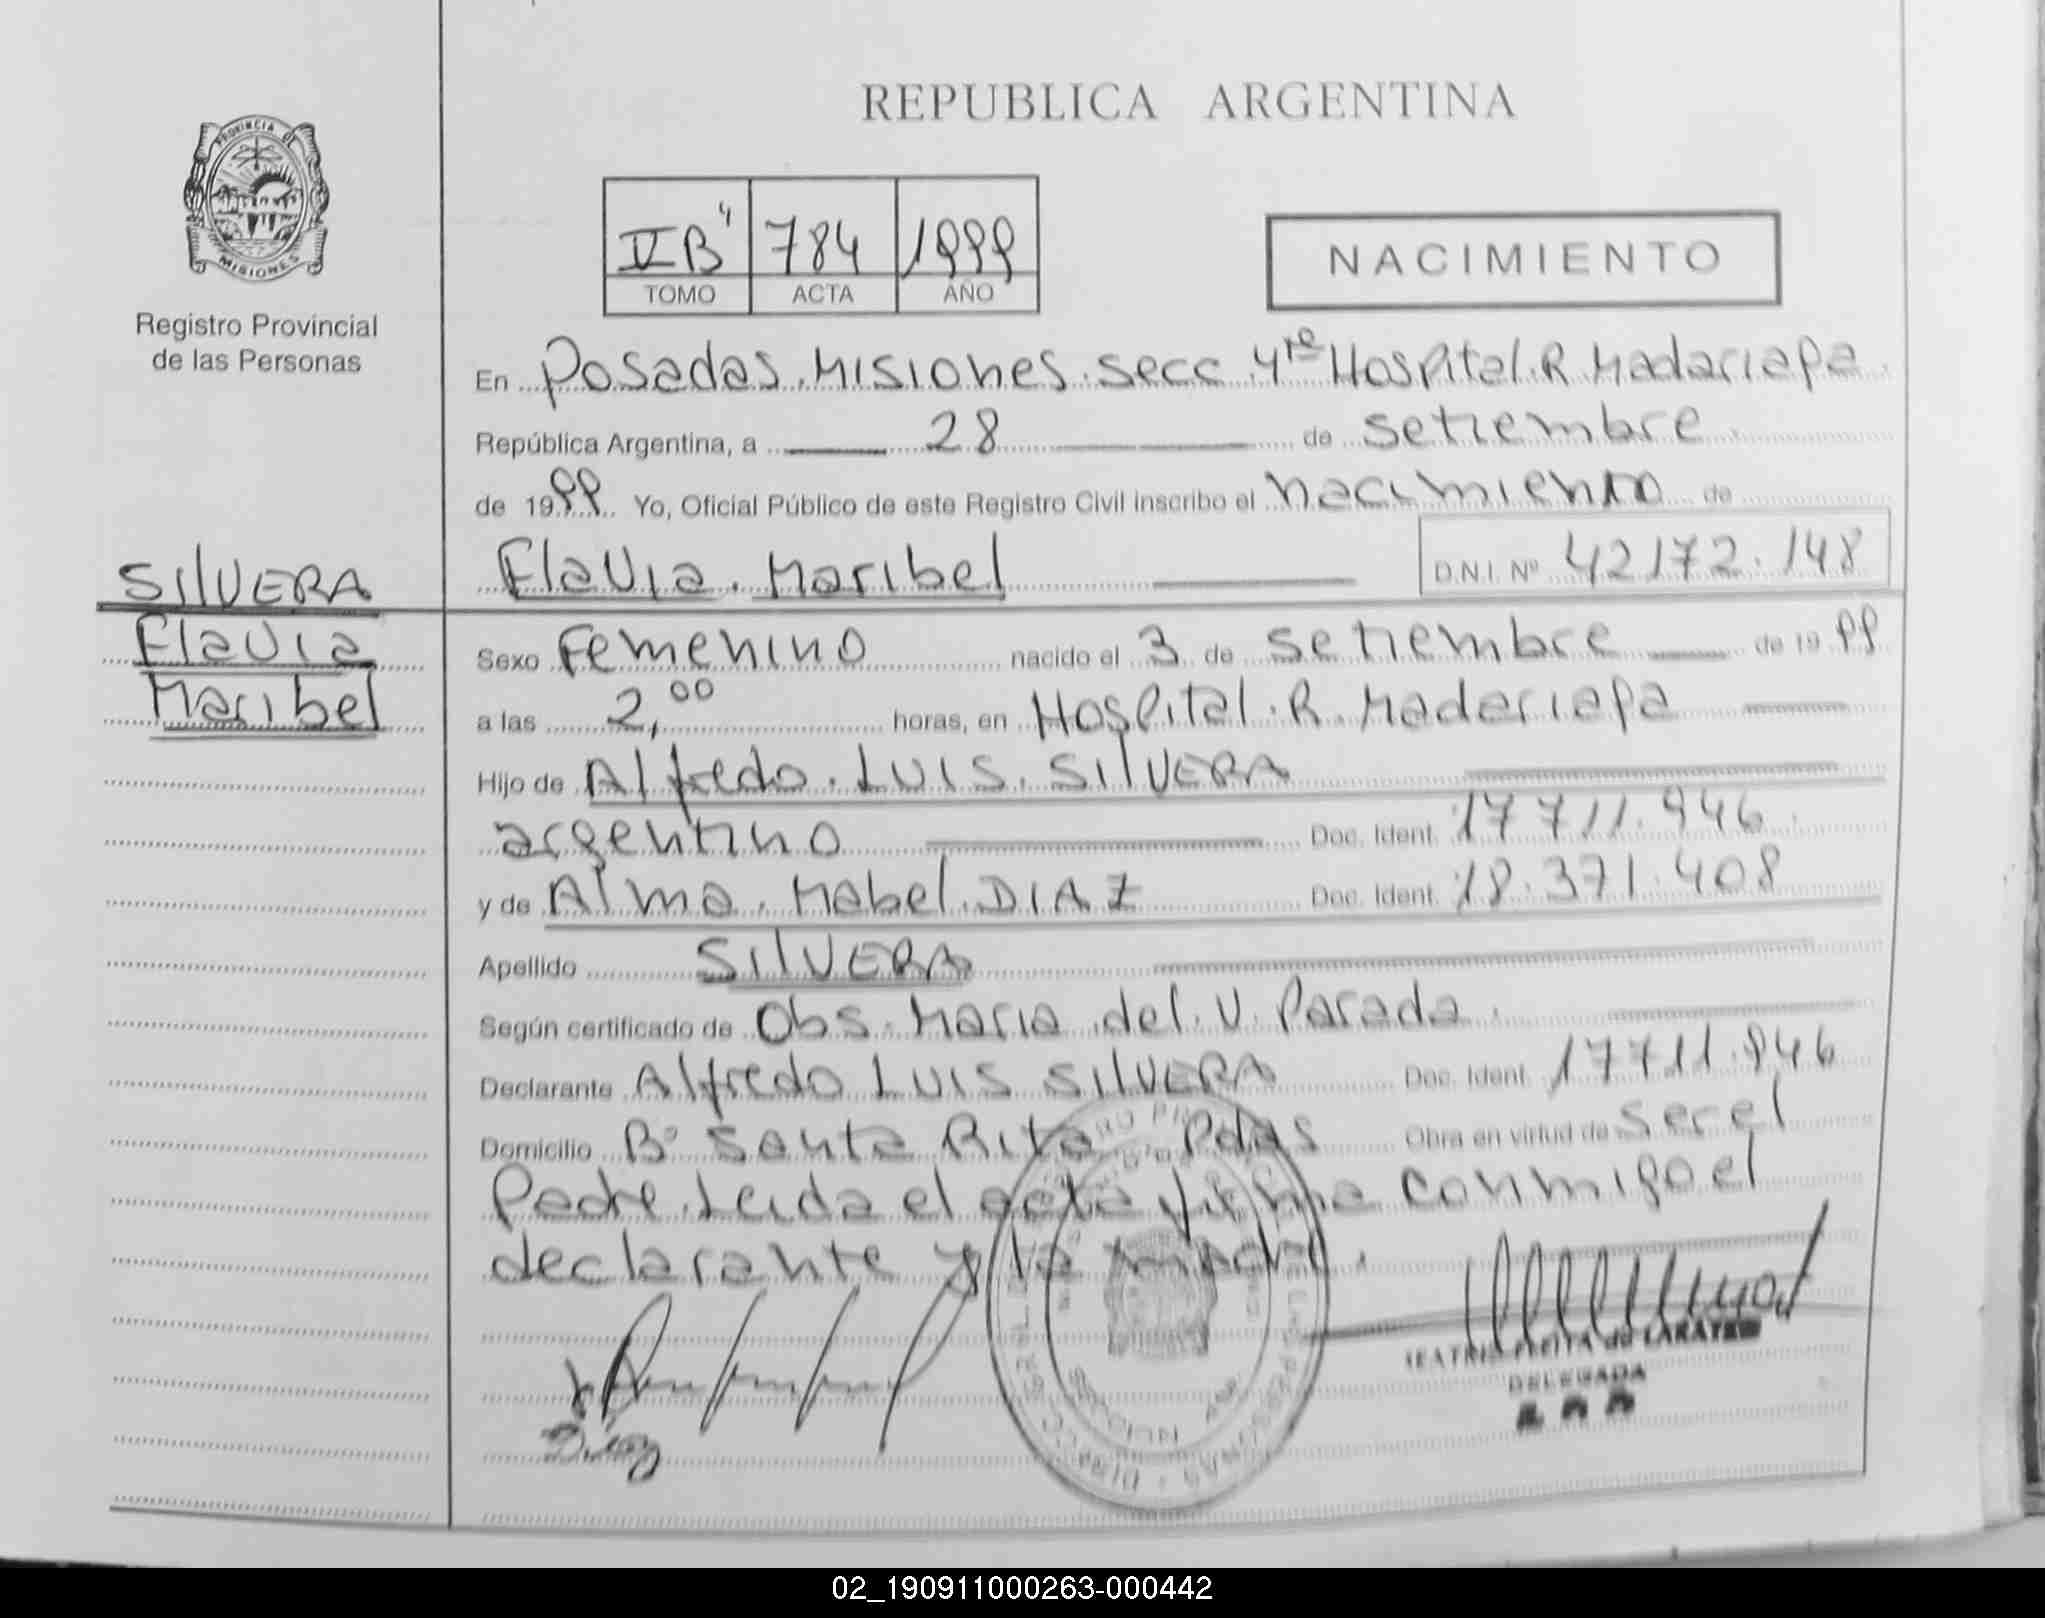 REPUBLICA ARGENTINA
PROVINCIA DE
MISIONES
Registro Provincial
de las Personas
VB⁴ 784 1999
TOMO ACTA AÑO
NACIMIENTO
En Posadas. Misiones. secc 4ta Hospital. R. Madariaga.
República Argentina, a 28 de setiembre.
de 1999 Yo, Oficial Público de este Registro Civil inscribo el nacimiento de
SILVERA
Flavia. Maribel D.N.I. Nº 42172.148
Flavia
Maribel
Sexo Femenino nacido el 3 de setiembre de 1999
a las 2,00 horas, en Hospital. R. Madariaga
Hijo de Alfredo. LUIS. SILVERA
argentino Doc. Ident. 17711.946
y de Alma. Mabel. DIAZ Doc. Ident. 18.371.408
Apellido SILVERA
Según certificado de Obs. Maria del. V. Parada.
Declarante Alfredo LUIS SILVERA Doc. Ident. 17711.946
Domicilio Bº Santa Rita Pdas Obra en virtud de ser el
Padre. Leida el acta firma conmigo el
declarante y la madre.
DELEGADA
02_190911000263-000442